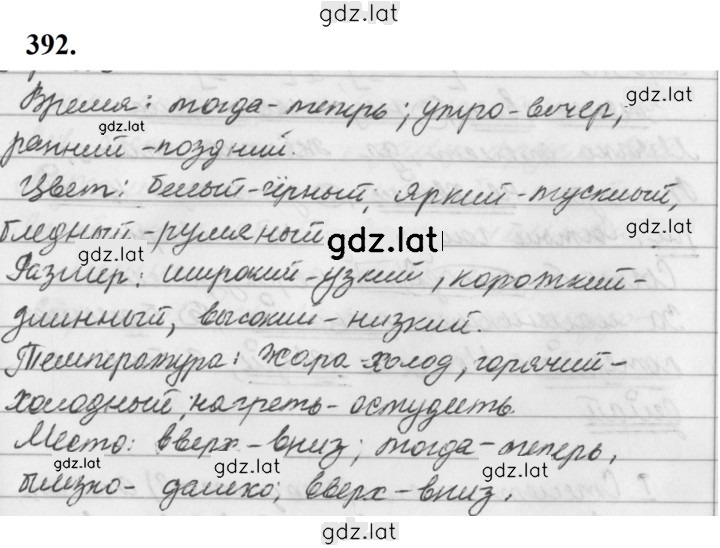 gdz.lat
392.
Время: тогда-теперь; утро-вечер,
gdz.lat gdz.lat
ранний-поздний.
Цвет: белый-чёрный, яркий-тусклый,
gdz.lat gdz.lat
бледный-румяный
gdz.lat
Размер: широкий-узкий, короткий-
длинный, высокий-низкий.
Температура: жара-холод, горячий-
холодный, нагреть-остудить.
Место: вверх-вниз; тогда-теперь,
gdz.lat gdz.lat
близко-далеко; вверх-вниз.
gdz.lat